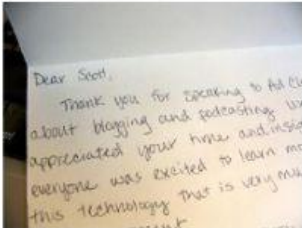 Dear Scott,
Thank you for speaking to Ad Cl
about blogging and podcasting. W
appreciated your time and insi
everyone was excited to learn mo
this technology that is very mu